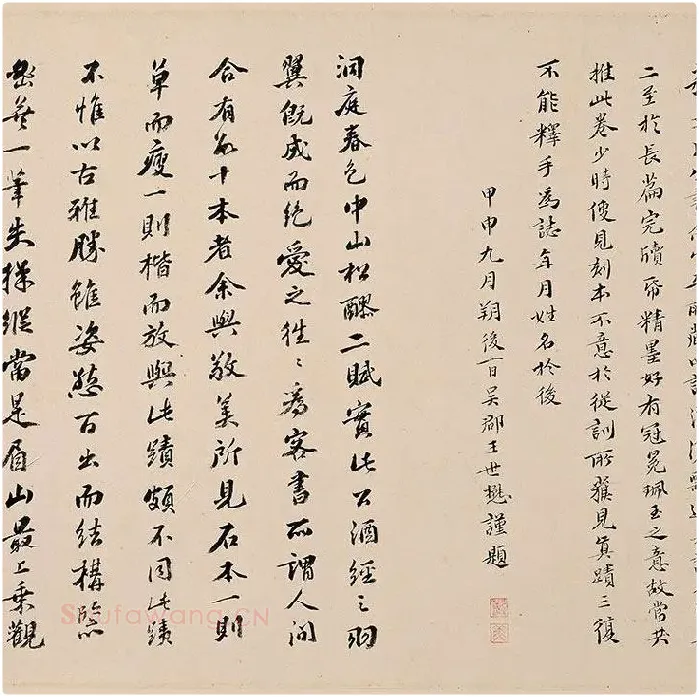 二至於長篇完牘帋精墨好有冠冕珮玉之意故當共
推此卷少時便見刻本不意於從訓所獲見真蹟三復
不能釋手為誌年月姓名於後
甲申九月朔後一日吳郡王世懋謹題
洞庭春色中山松醪二賦實此公酒經之羽
翼既成而絕愛之往〻為客書所謂人間
合有數十本者余與敬美所見石本一則
草而瘦一則楷而放與此蹟頗不同此蹟
不惟以古雅勝雖姿態百出而結構緊
密無一筆失操縱當是眉山最上乘觀
Shufawang.CN